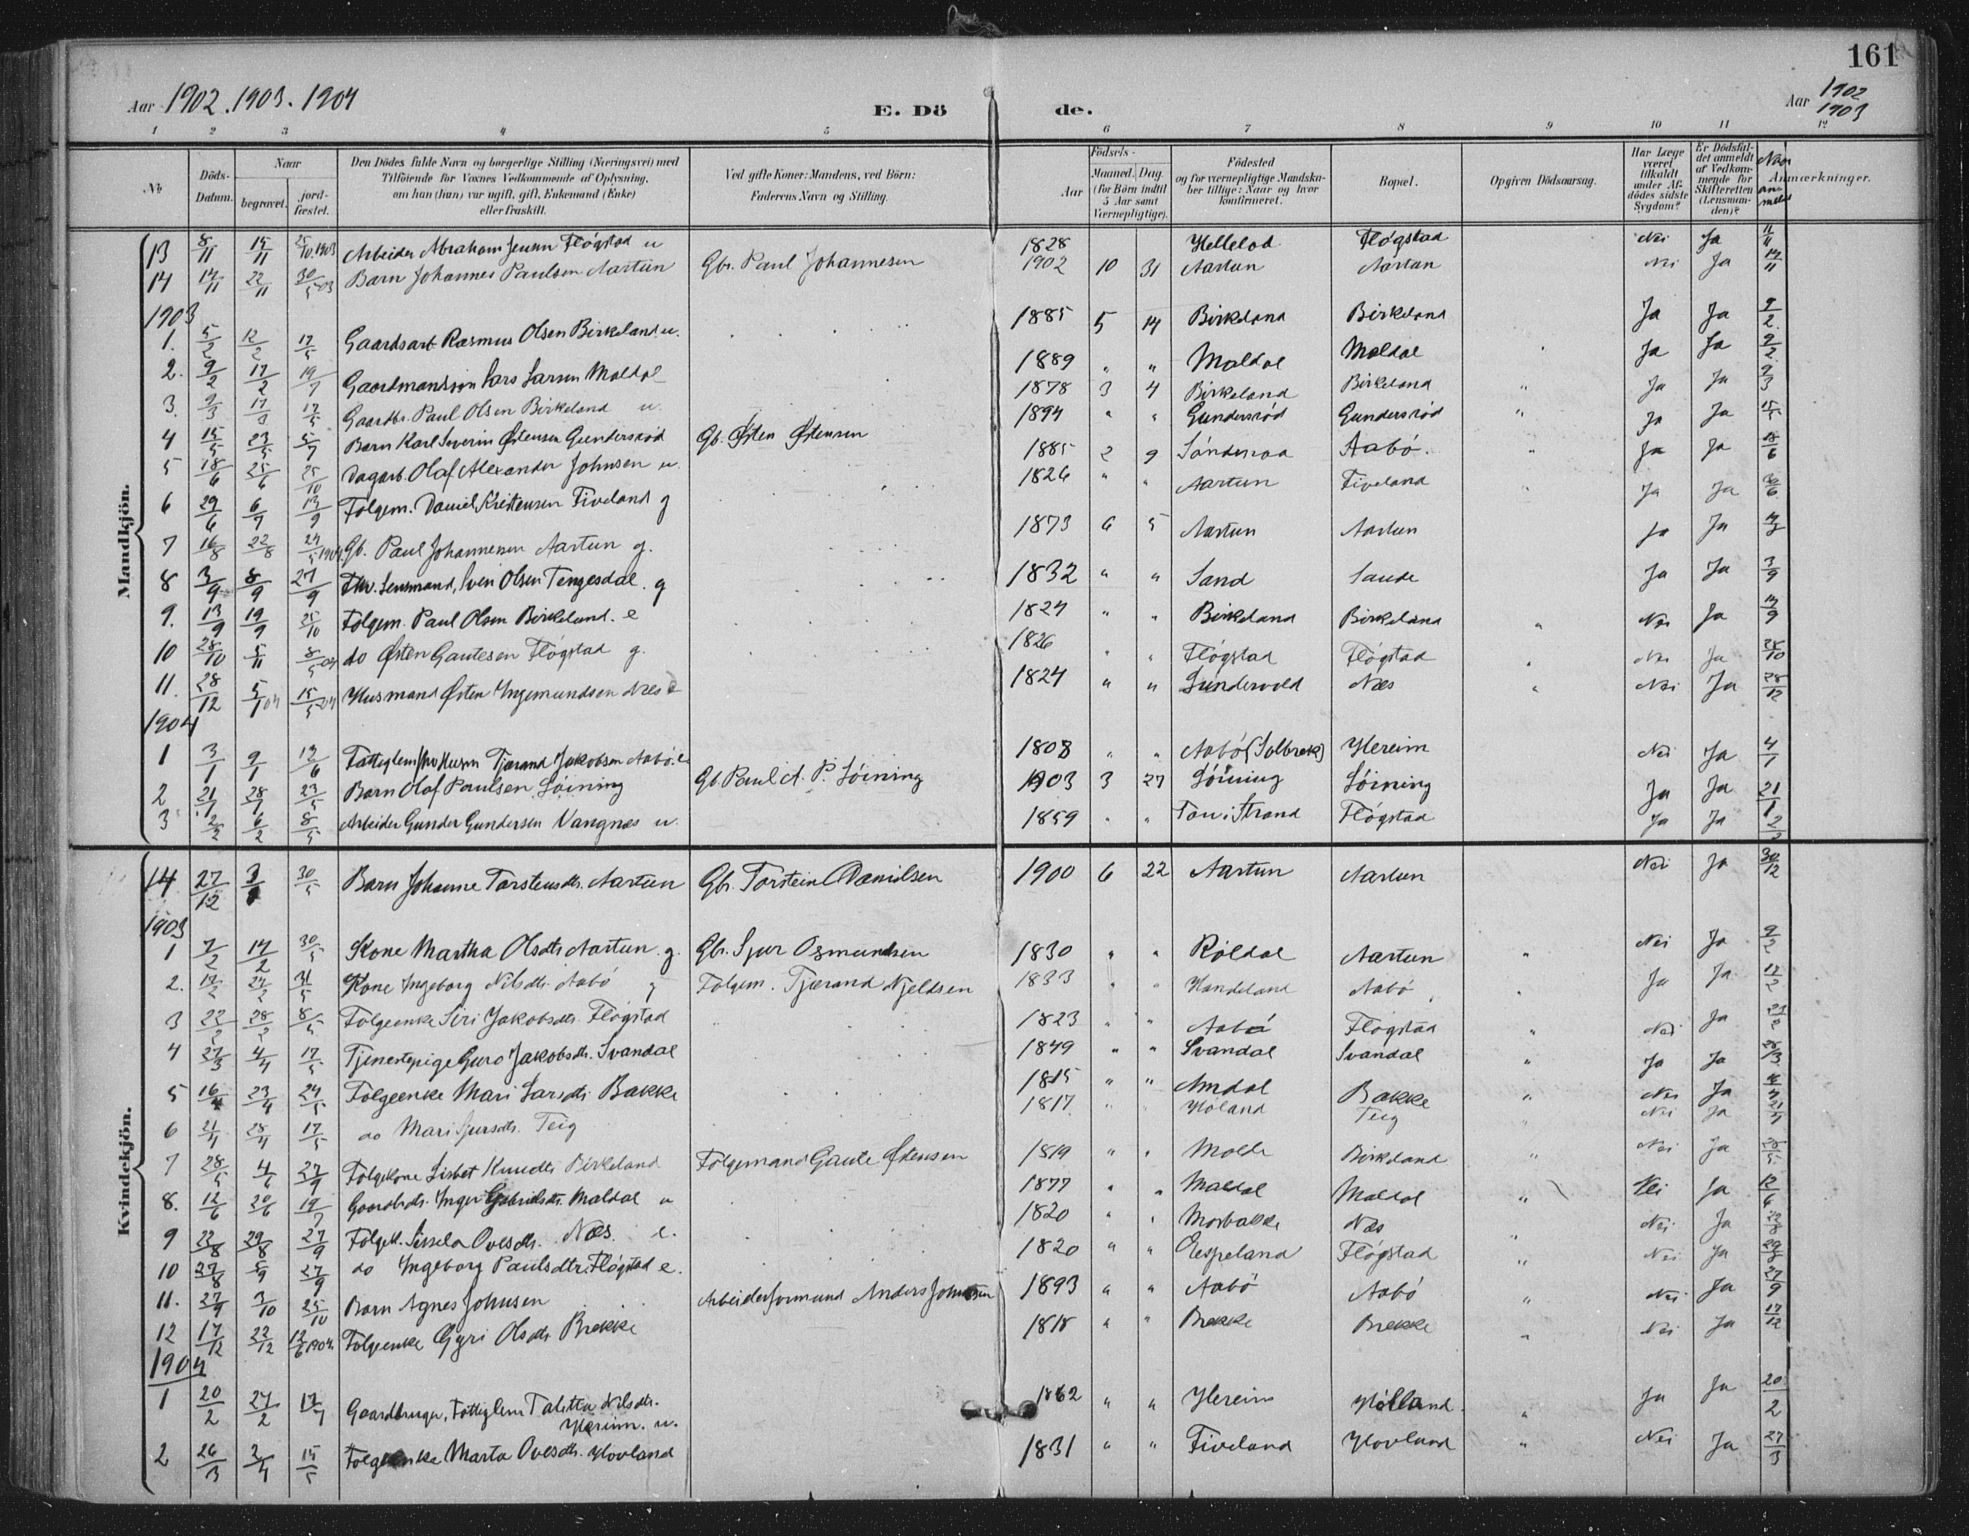 161
Aar 1902. 1903. 1904
E. Dö de.
Aar 1902 1903
1 2 3 4 5 6 7 8 9 10 11 12
No
Döds-Datum.
Naar
begravet.
jord-fæstet.
Den Dödes fulde Navn og borgerlige Stilling (Næringsvei) med Tilföiende for Voxnes Vedkommende af Oplysning, om han (hun) var ugift, gift, Enkemand (Enke) eller fraskilt.
Ved gifte Koner: Mandens, ved Börn: Faderens Navn og Stilling.
Födsels-
Aar
Maaned. Dag. (for Börn indtil 5 Aar samt Værnepligtige).
Födested og for værnepligtige Mandskaber tillige: Naar og hvor konfirmeret.
Bopæl.
Opgiven Dödsaarsag.
Har Læge været tilkaldt under Afdödes sidste Sygdom?
Er Dödsfaldet anmeldt af Vedkommende for Skifteretten (Lensmanden)?
Anmærkninger.
Mandkjön.
13 8/11 15/11 25/10 1903 Arbeider Abraham Jensen Flógstad u 1828 Hellelod Flógstad Nei Ja 11/11
14 14/11 22/11 30/5 03 Barn Johannes Paulsen Aartun Gbr. Paul Johannesen 1902 10 31 Aartun Aartun Nei Ja 14/11
1903
1. 5/2 12/2 17/5 Gaardsarb Rasmus Olsen Birkeland u. 1885 5 14 Birkeland Birkeland Ja Ja 9/2
2. 9/2 17/2 19/7 Gaardmandssøn Lars Larsen Maldal 1889 " " Maldal Maldal Ja Ja 9/2
3. 9/3 17/3 17/5 Gaardbr. Paul Olsen Birkeland u. 1878 3 4 Birkeland Birkeland " Ja Ja 9/3
4 15/5 23/5 5/7 Barn Karl Severin Østensen Gundersród Gb. Østen Østensen 1894 " " Gundersród Gundersród " Ja Ja 15/5
5 18/6 25/6 25/10 Dagarb. Olaf Alexander Johnsen u. 1885 2 9 Sónderaa Aabó. " Ja Ja 18/6
6 29/6 6/7 13/9 Folgem. Daniel Kristensen Fiveland g 1826 " " Aartun Fiveland " Ja Ja
7 16/8 22/8 24/5 1904 Gb. Paul Johannesen Aartun g. 1873 6 5 Aartun Aartun Ja Ja
8 3/9 8/9 27/9 Lensmand, Sven Olsen Tengesdal. g 1832 " " Sand Saude Ja Ja 3/9
9. 13/9 19/9 25/10 Folgem. Paul Olsen Birkeland. e 1824 " " Birkeland Birkeland " Nei Ja 14/9
10 28/10 5/11 8/5 04 do Østen Gautesen Flógstad g. 1826 " " Flógstad Flógstad " Nei Ja 28/10
11. 28/12 5/1 04 15/5 04 Husmand Østen Ingemundsen Næs e 1824 " " Sundervold Næs " Nei Ja 28/12
1904
1 3/1 9/1 12/6 Fattiglem Tjerand Jakobsen Aabó. e 1808 " " Aabó (Solbrek) Hereim Nei Ja 4/1
2 21/1 28/1 23/5 Barn Olaf Paulsen Lóining Gb Paul A. P. Lóining 1903 3 27 Lóining Lóining Ja Ja 21/1
3 2/2 6/2 8/5 Arbeider Gunder Gundersen Vangnæs u. 1859 " " Tou i Strand Flógstad Ja Ja 2/2
Kvindekjön.
14. 27/12 3/1 30/5 Barn Johanne Torstensdtr. Aartun Gbr. Torstein Danielsen 1900 6 22 Aartun Aartun Nei Ja 30/12
1903
1 7/2 14/2 30/5 Kone Martha Olsdtr Aartun. g. Gbr. Sjur Osmundsen 1830 " " Róldal Aartun " Nei Ja 9/2
2. 12/2 24/2 31/5 Kone Ingeborg Nilsdtr. Aabó g Folgem. Tjerand Kjeldsen 1833 " " Handeland Aabó " Ja Ja 12/2
3 22/2 28/2 8/5 Folgeenke Siri Jakobsdtr. Flógstad 1823 " " Aabó Flógstad " Nei Ja
4 27/3 4/4 17/5 Tjenestepige Guro Jakobsdtr. Svandal 1849 " " Svandal Svandal " Ja Ja 28/3
5 16/4 23/4 24/5 Folgeenke Mari Larsdtr. Bakke 1815 " " Amdal Bakke " Nei Ja
6 21/4 28/4 17/5 do Mari Sjursdtr. Teig 1817 " " Hóland Teig Nei Ja
7 28/5 4/6 27/9 Folgekone Lisbet Knudtr Birkeland Folgemand Gaute Østensen 1819 " " Molde Birkeland " Nei Ja 28/5
8. 12/6 20/6 19/7 Gaardbrdtr. Inger Gabrielsdtr. Maldal u 1877 " " Maldal Maldal " Nei Ja 12/6
9 22/8 29/8 27/9 Folgek. Sissela Ovesdtr. Næs. e. 1820 " " Morbakke Næs " Nei Ja 22/8
10 27/8 5/9 27/9 do Ingeborg Paulsdtr. Flógstad e. 1820 " " Espeland Flógstad " Nei Ja
11. 27/9 3/10 25/10 Barn Agnes Johnsen Arbeiderformand Anders Johnsen 1893 " " Aabó Aabó " Nei Ja 27/9
12 17/12 22/12 12/6 1904. Folgeenke Gyri Olsdtr Brekke 1818 " " Brekke Brekke " Nei Ja 17/12
1904
1 20/2 27/2 17/7 Gaardbruger, Fattiglem Talitta Nilsdtr. 1862 " " Hereim Hólland. " Ja Ja 20/2
Hereim. u.
2 26/3 3/4 15/5 Folgeenke Marta Ovesdtr. Hovland 1831 " " Fiveland Hovland " Nei Ja 27/3